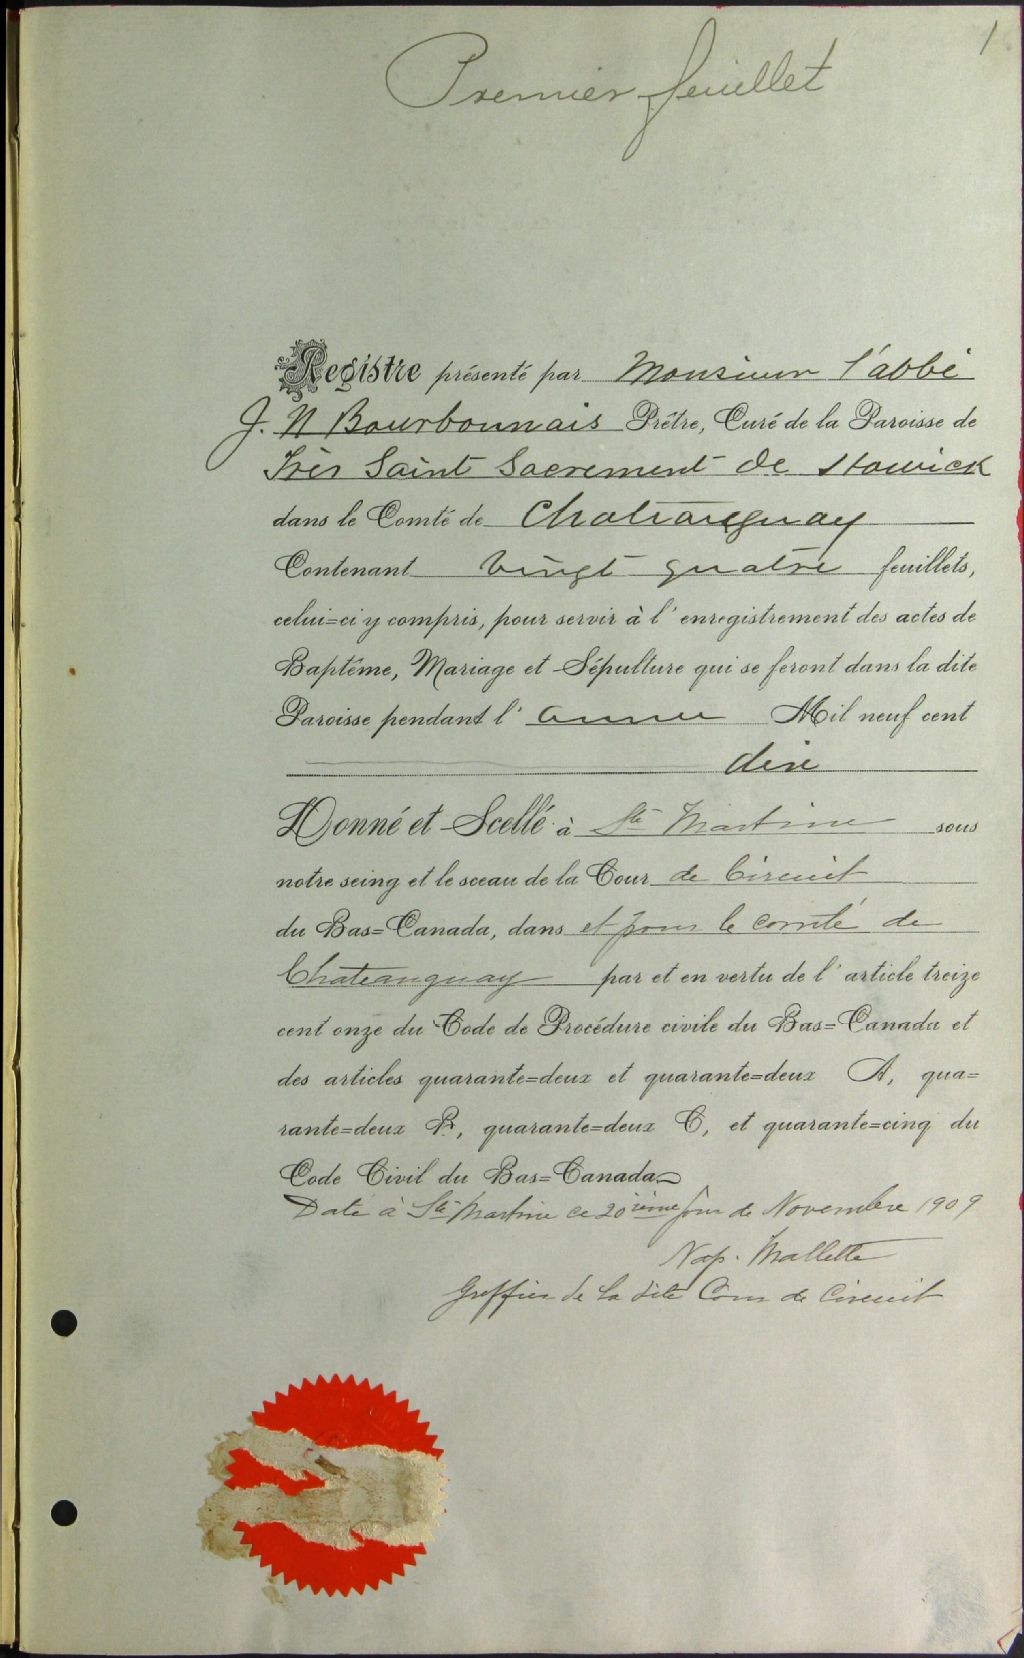 1
Premier feuillet
Registre présenté par Monsieur l'abbé
J. N Bourbonnais Prêtre, Curé de la Paroisse de
Très Saint Sacrement de Howick
dans le Comté de Chateauguay
Contenant vingt quatre feuillets,
celui=ci y compris, pour servir à l'enregistrement des actes de
Baptême, Mariage et Sépulture qui se feront dans la dite
Paroisse pendant l'année Mil neuf cent
dix
Donné et Scellé à Ste Martine sous
notre seing et le sceau de la Cour de Circuit
du Bas=Canada, dans et pour le comté de
Chateauguay par et en vertu de l'article treize
cent onze du Code de Procédure civile du Bas=Canada et
des articles quarante=deux et quarante=deux A, qua=
rante=deux B, quarante=deux C, et quarante=cinq du
Code Civil du Bas=Canada
Daté à Ste Martine ce 20ième jour de Novembre 1909
Nap. Mallette
Greffier de la dite Cour de Circuit